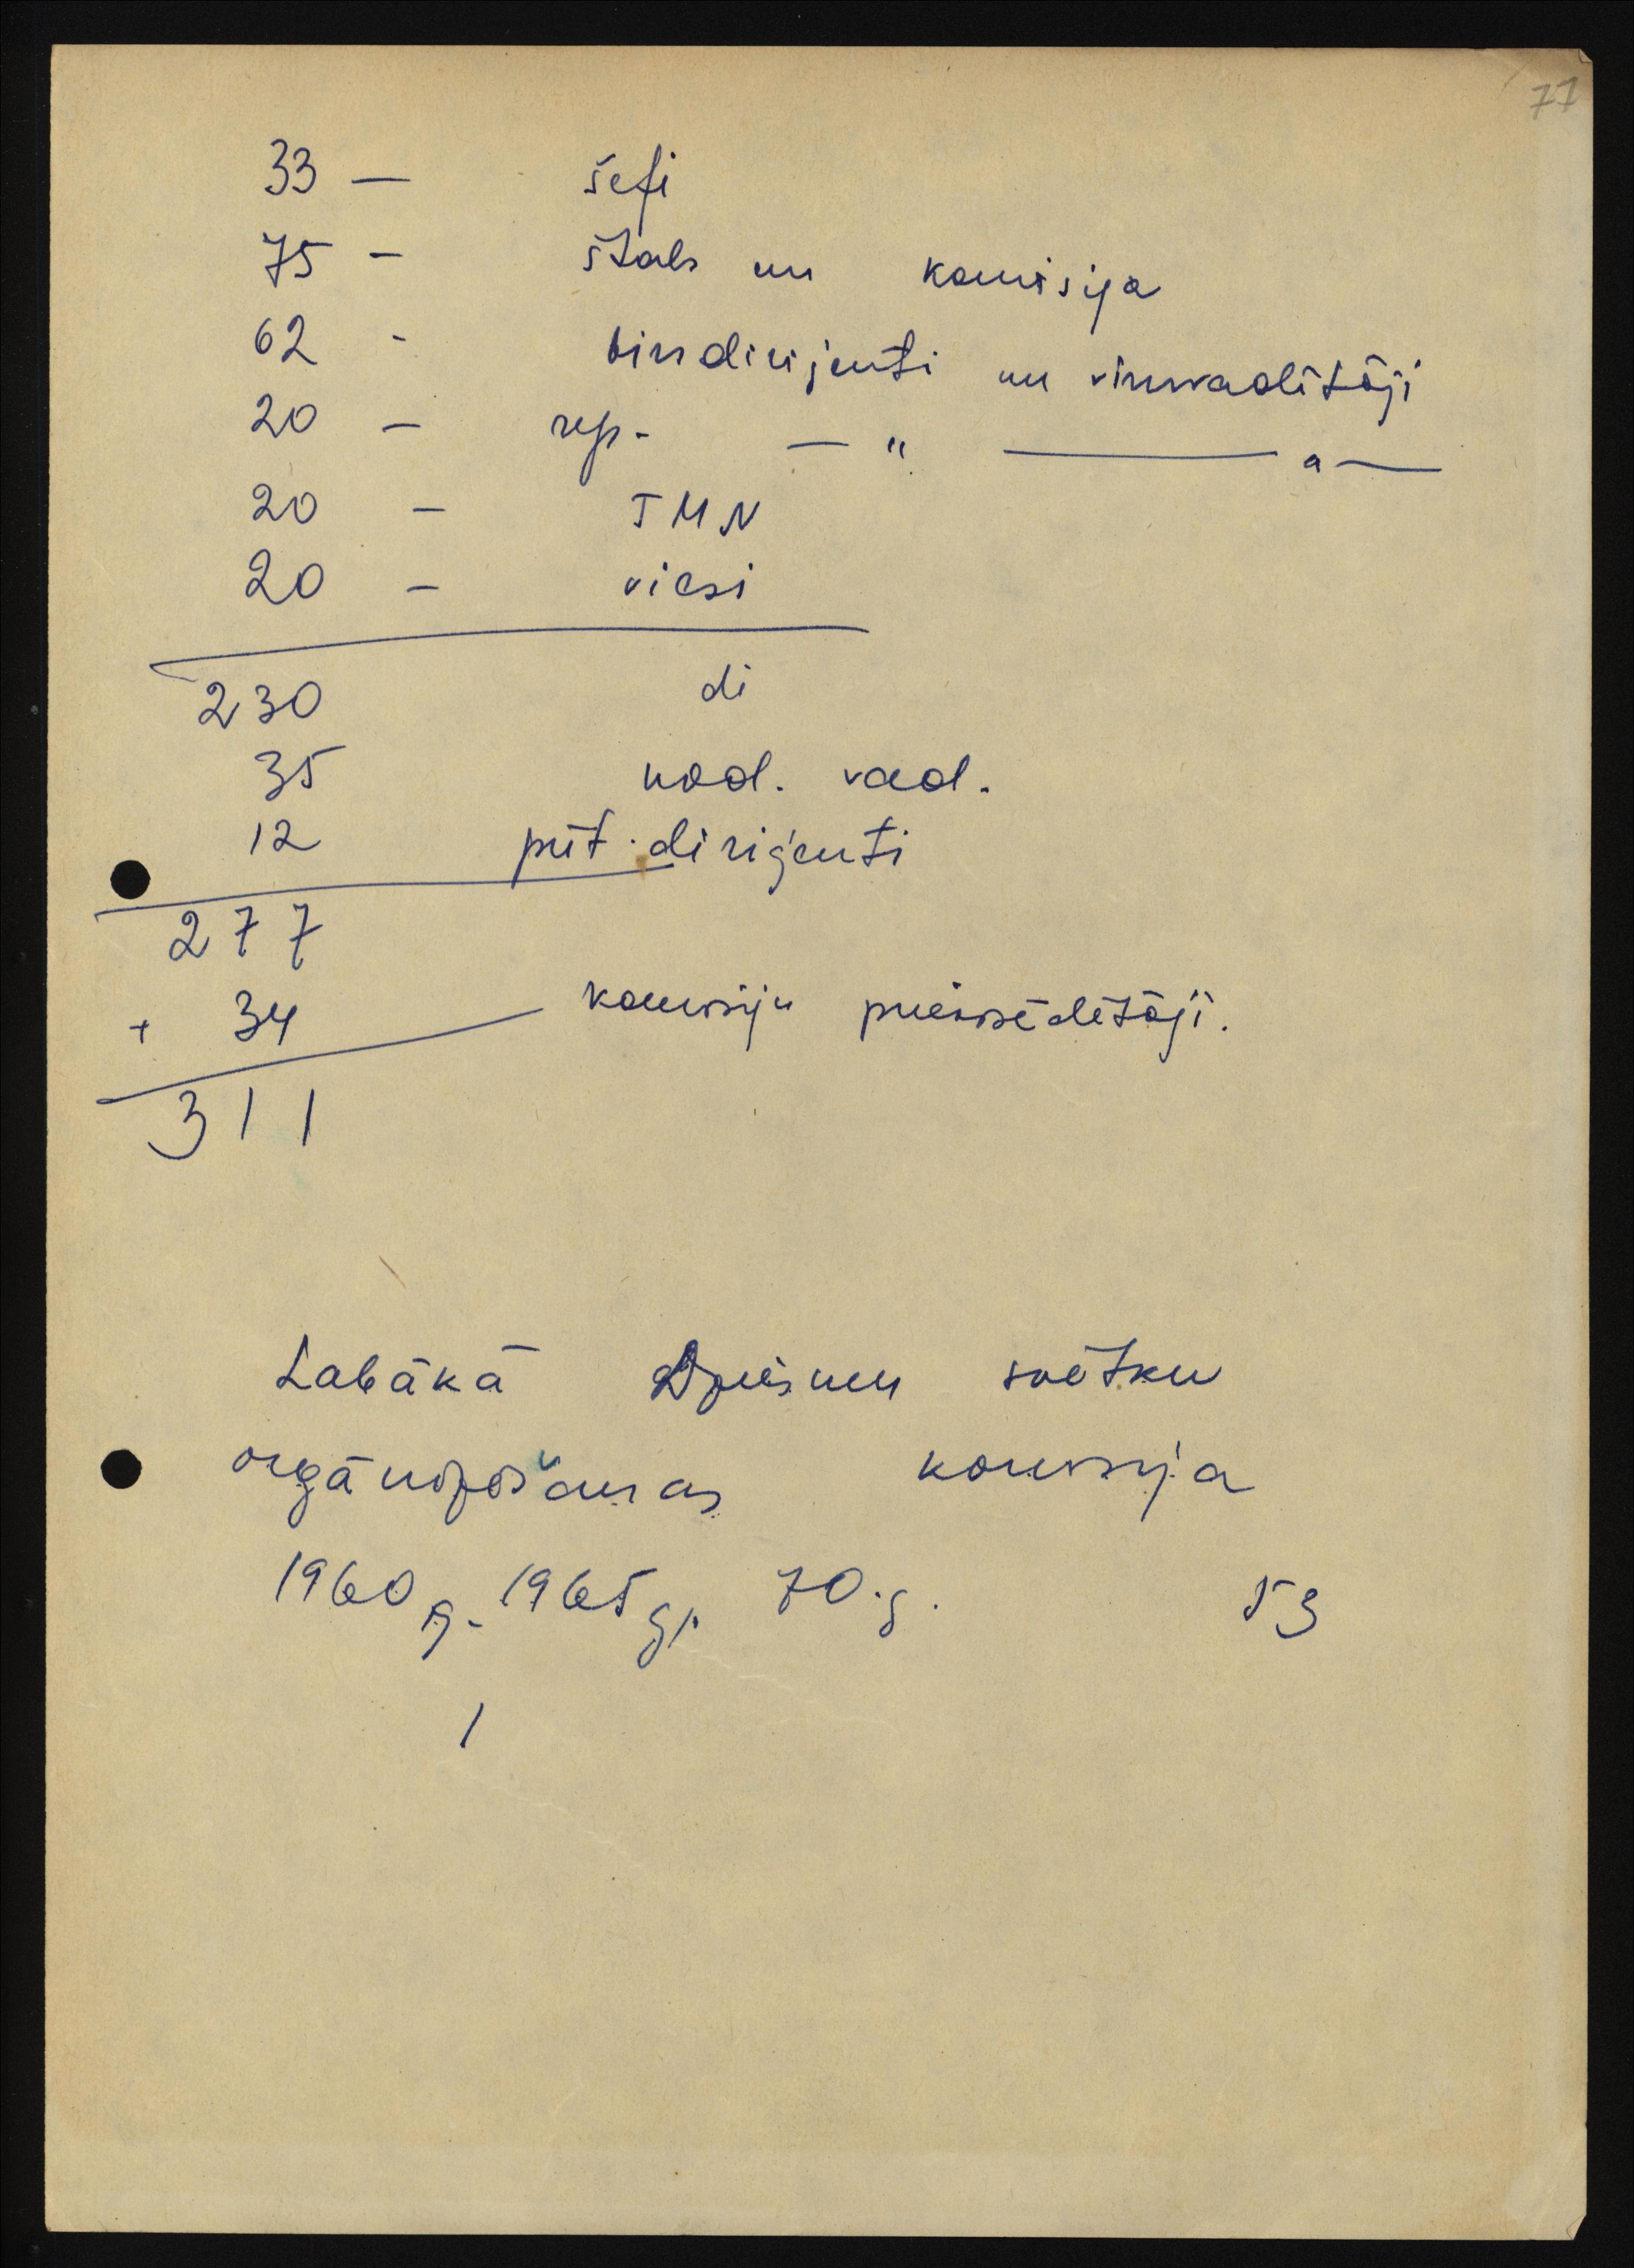 77
33 — šefi
75 - štabs un komisija
62 - virsdiriģenti un virsvadītāji
20 — rep. — " ——— " —
20 — TMN
20 — viesi
230 di
35 nod. vad.
12 pūt. diriģenti
277
+ 34 komisiju priekšsēdētāji.
311
Labākā Dziesmu svētku
organizēšanas komisija
1960 g. 1965 g. 70. g. 53
1